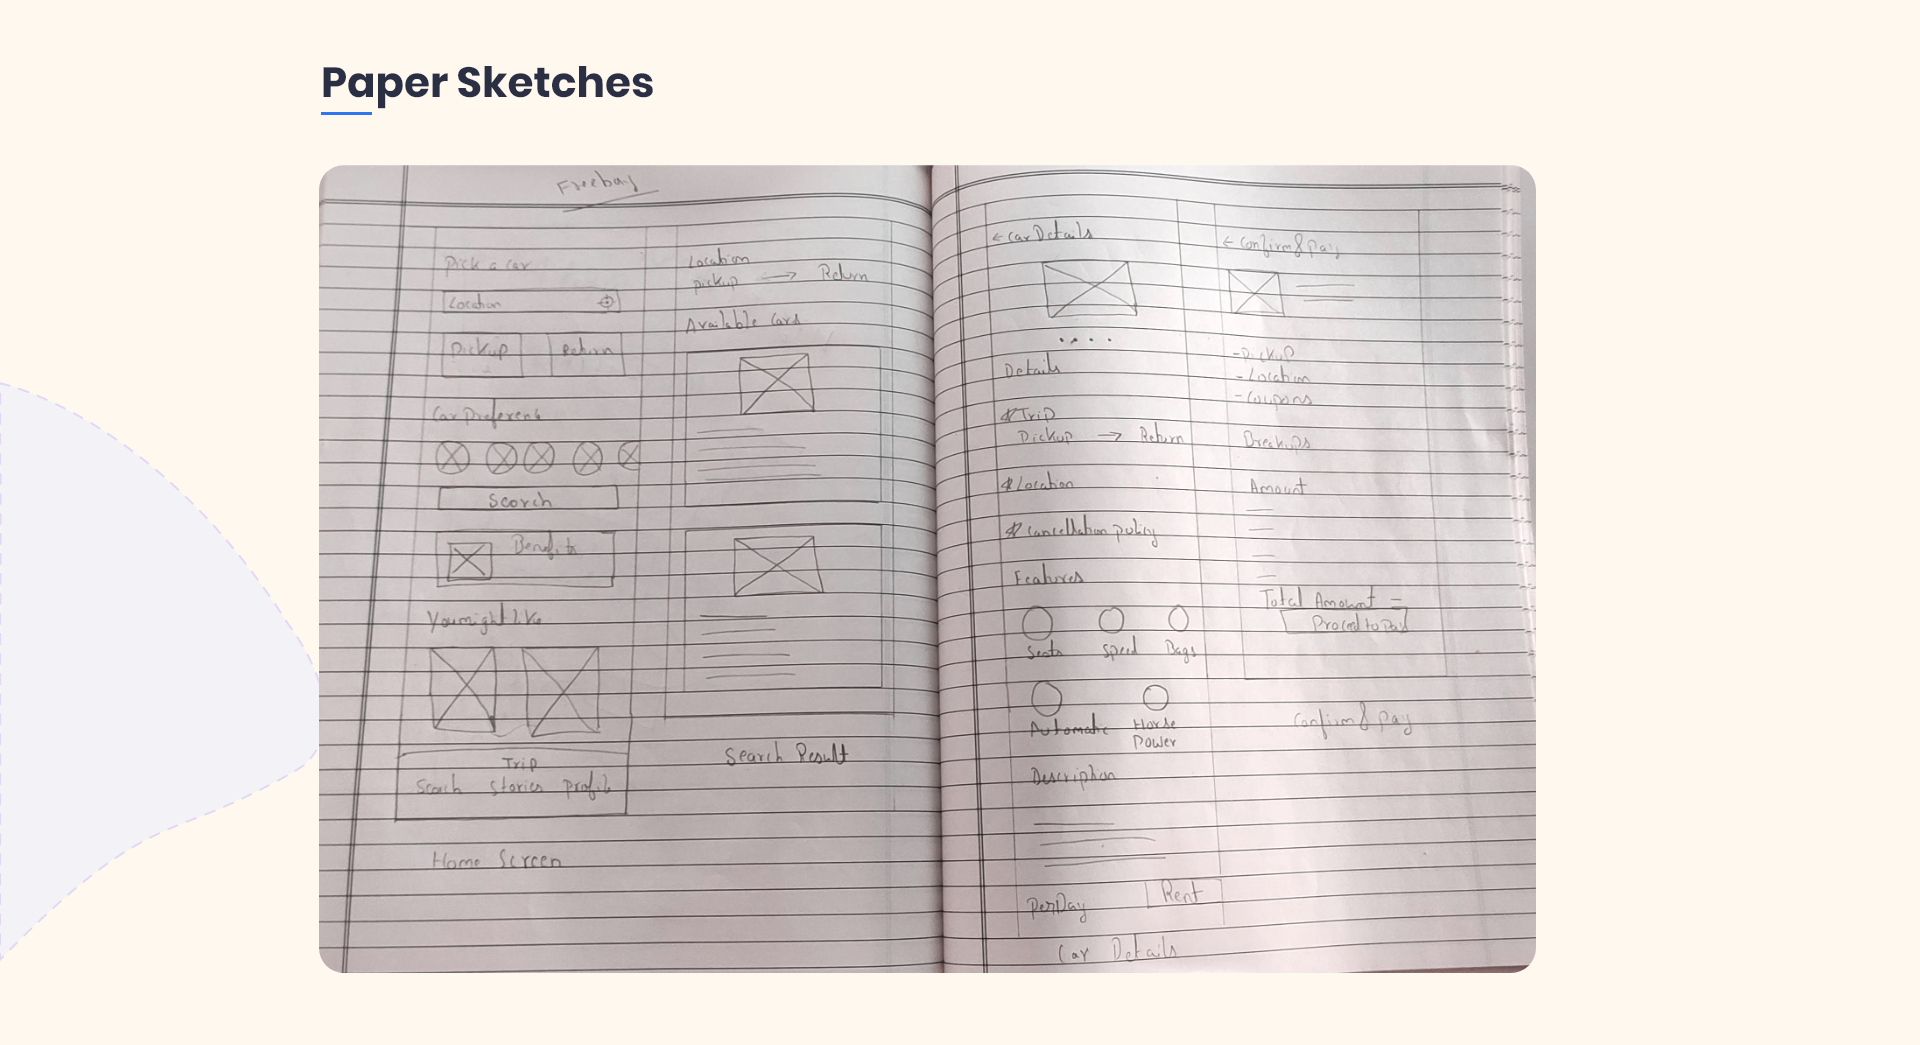 Paper Sketches
Freebay
Pick a car
Location
Pickup Return
Car Preferens
Search
Benefits
You might like
Trip
Search stories profile
Home Screen
Location
pickup → Return
Available Cars
Search Result
← Car Details
Details
Trip
Pickup → Return
Location
Cancellation policy
Features
Seats Speed Bags
Automatic Horse
Power
Description
Per Day Rent
Car Details
← Confirm & Pay
- Pickup
- Location
- Coupons
Breakups
Amount
Total Amount =
Proceed to Pay
Confirm & Pay